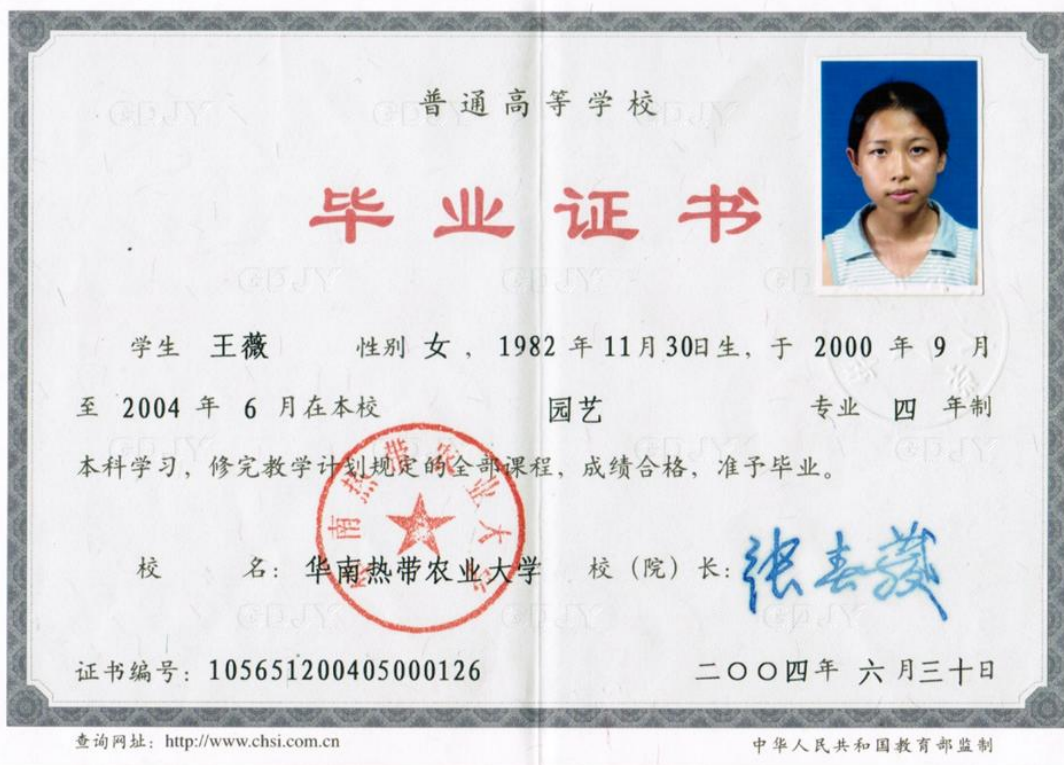 普通高等学校
毕业证书
学生 王薇 性别 女 ，1982 年 11月 30日生，于 2000 年 9 月
至 2004 年 6 月在本校 园艺 专业 四 年制
本科学习，修完教学计划规定的全部课程，成绩合格，准予毕业。
华南热带农业大学
校 名：华南热带农业大学 校（院）长：张春发
证书编号：105651200405000126 二〇〇四年 六 月三十日
查询网址：http://www.chsi.com.cn 中华人民共和国教育部监制
GDJY